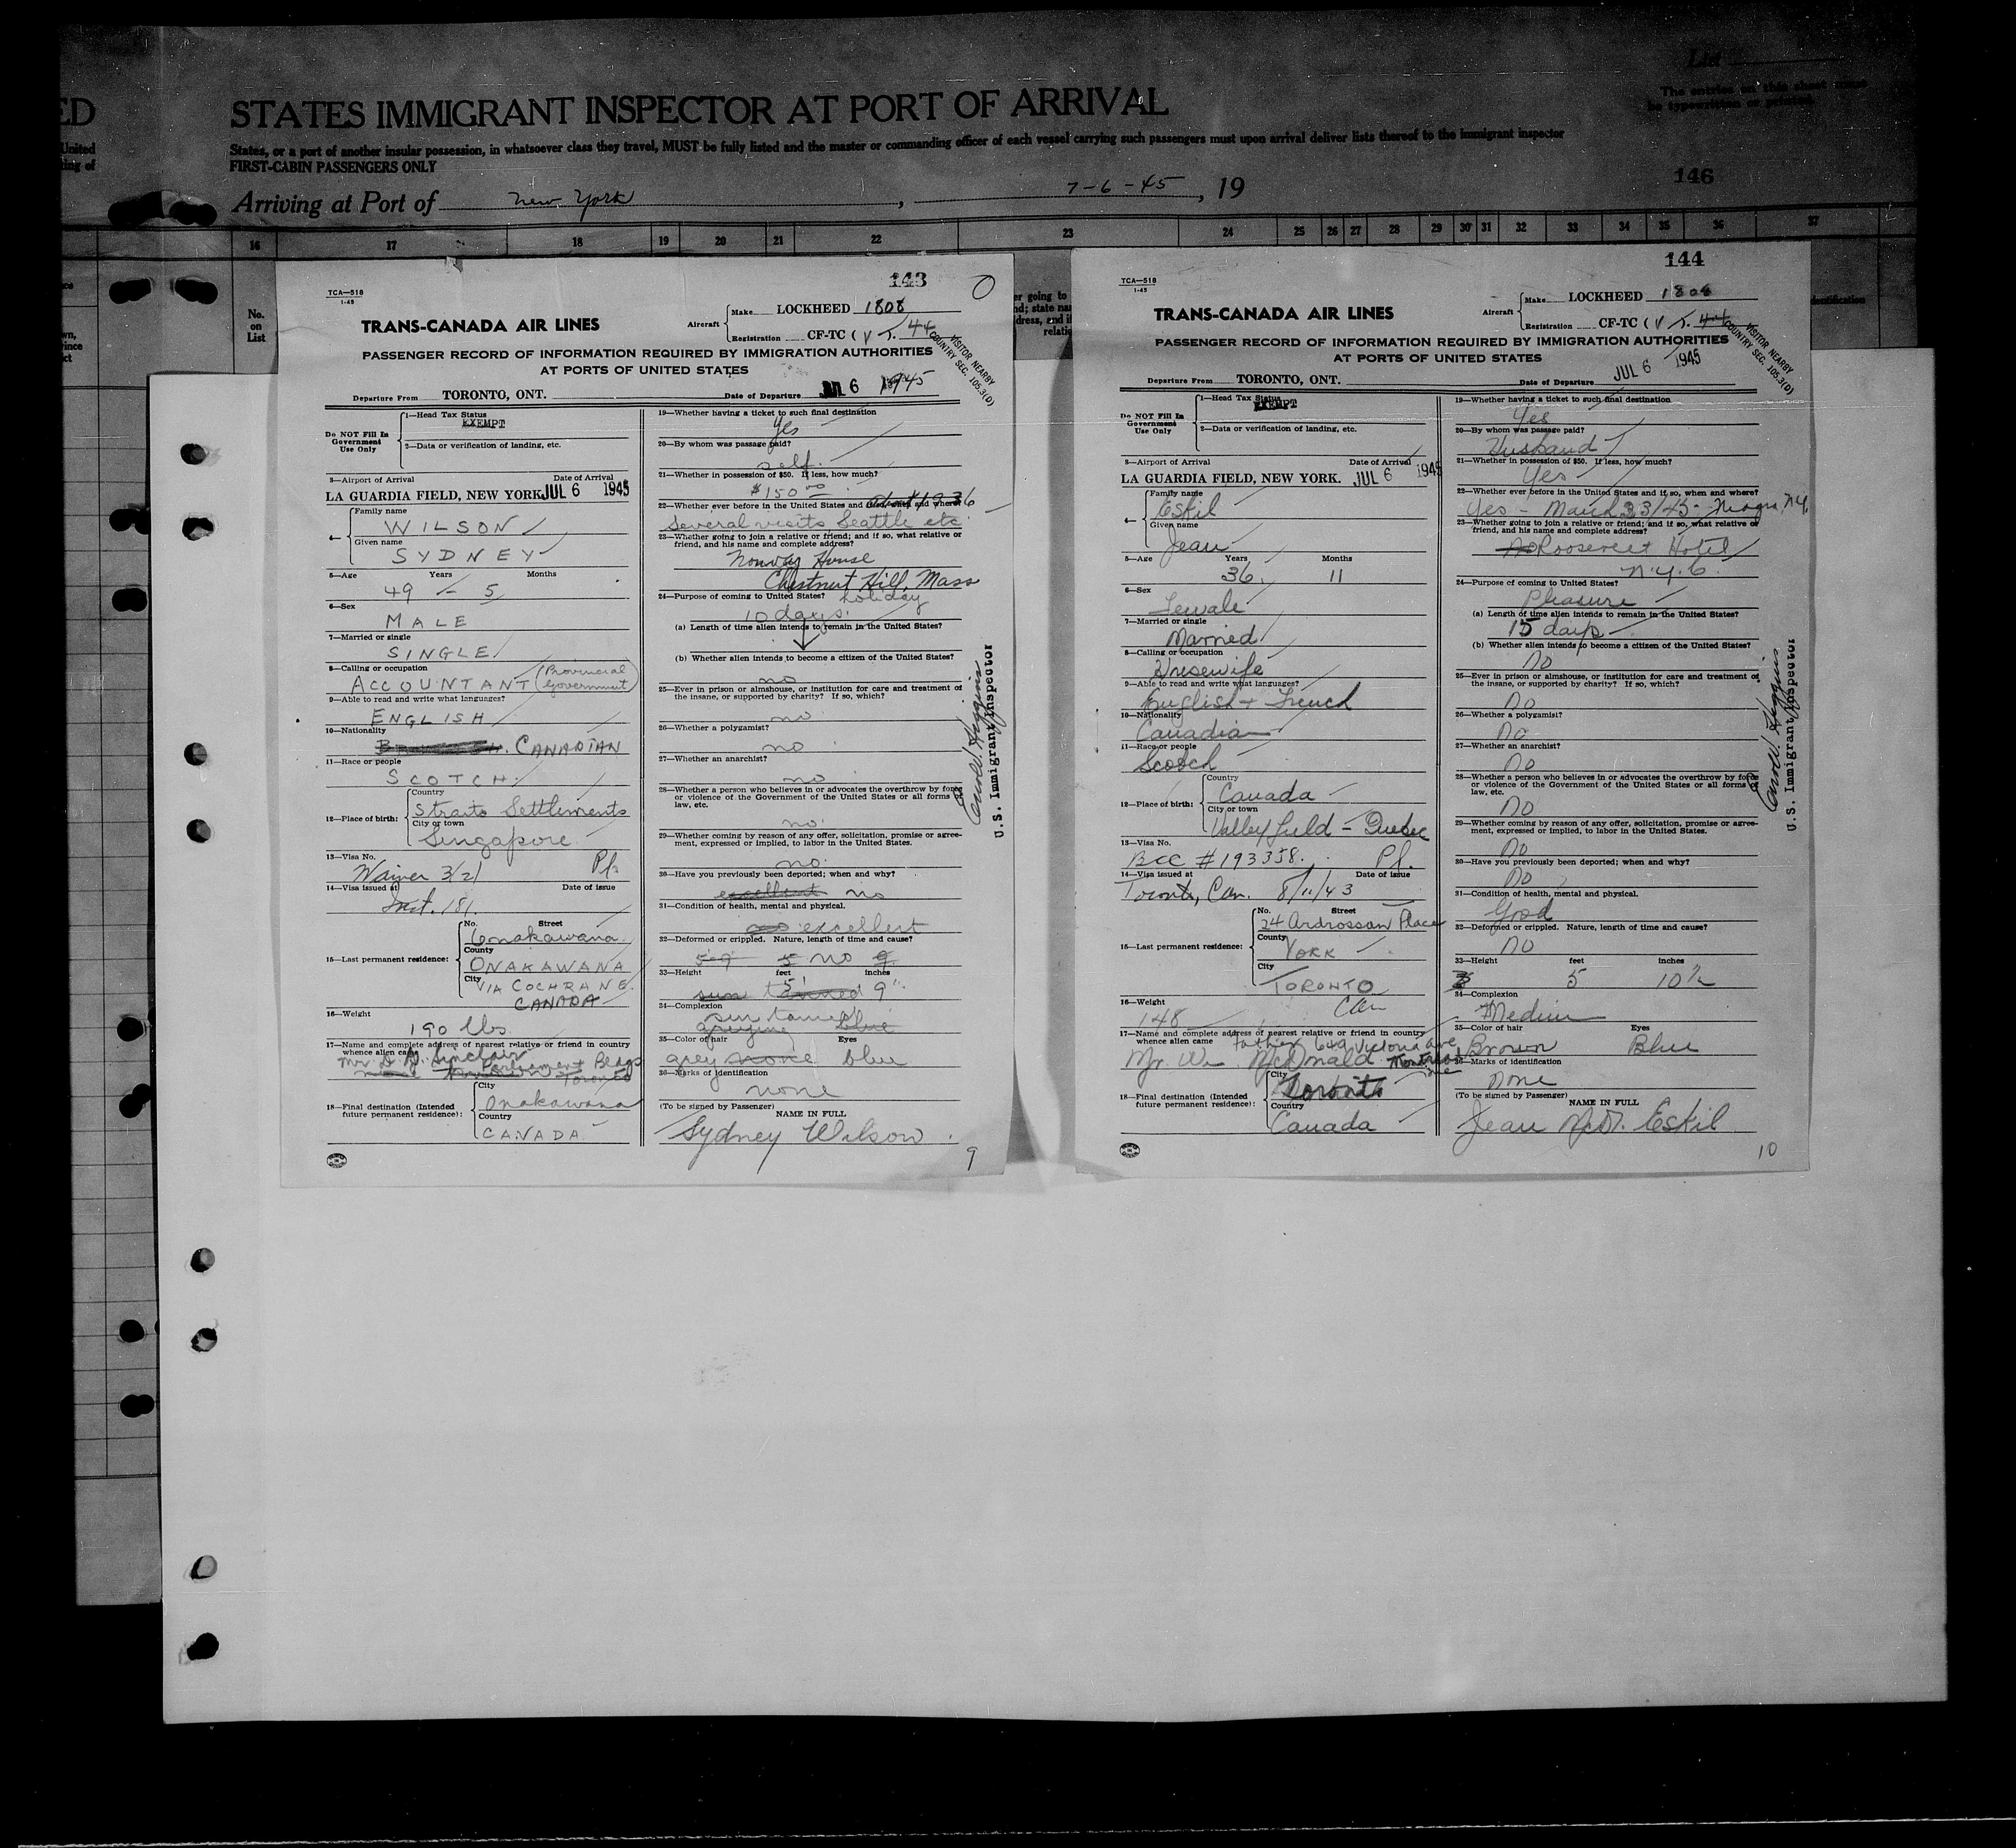 ED
United
ing of
List
The entries on this sheet must
be typewritten or printed
STATES IMMIGRANT INSPECTOR AT PORT OF ARRIVAL
States, or a port of another insular possession, in whatsoever class they travel, MUST be fully listed and the master or commanding officer of each vessel carrying such passengers must upon arrival deliver lists thereof to the immigrant inspector
FIRST-CABIN PASSENGERS ONLY
146
Arriving at Port of New York, 7-6-45, 19
16 17 18 19 20 21 22 23 24 25 26 27 28 29 30 31 32 33 34 35 36 37
No.
on
List
143
TCA—518
1-45
TRANS-CANADA AIR LINES
Aircraft
Make LOCKHEED 1808
Registration CF-TC (V T. 44
VISITOR NEARBY
COUNTRY SEC. 105.3(D)
PASSENGER RECORD OF INFORMATION REQUIRED BY IMMIGRATION AUTHORITIES
AT PORTS OF UNITED STATES
Departure From TORONTO, ONT. Date of Departure JUL 6 1945
Do NOT Fill In
Government
Use Only
1—Head Tax Status
EXEMPT
2—Data or verification of landing, etc.
3—Airport of Arrival Date of Arrival
LA GUARDIA FIELD, NEW YORK JUL 6 1945
4—
Family name
WILSON
Given name
SYDNEY
5—Age Years Months
49 - 5
6—Sex
MALE
7—Married or single
SINGLE
8—Calling or occupation
ACCOUNTANT (Provincial Government)
9—Able to read and write what languages?
ENGLISH
10—Nationality
CANADIAN
11—Race or people
SCOTCH
12—Place of birth:
Country
Straits Settlements
City or town
Singapore
13—Visa No.
Waiver 3/21 Pf.
14—Visa issued at Date of issue
Inst. 181.
15—Last permanent residence:
No. Street
Onakawana
County
ONAKAWANA
City
VIA COCHRANE
CANADA
16—Weight
190 lbs.
17—Name and complete address of nearest relative or friend in country
whence alien came
Mr. D. G. Sinclair
Parliament Bldgs
Toronto
18—Final destination (Intended
future permanent residence):
City
Onakawana
Country
CANADA
19—Whether having a ticket to such final destination
Yes
20—By whom was passage paid?
self.
21—Whether in possession of $50. If less, how much?
$150.00
22—Whether ever before in the United States and if so, when and where?
about 1936
Several visits Seattle etc
23—Whether going to join a relative or friend; and if so, what relative or
friend, and his name and complete address?
House
Chestnut Hill, Mass
24—Purpose of coming to United States? holiday
10 days.
(a) Length of time alien intends to remain in the United States?
(b) Whether alien intends to become a citizen of the United States?
no
25—Ever in prison or almshouse, or institution for care and treatment of
the insane, or supported by charity? If so, which?
no
26—Whether a polygamist?
no
27—Whether an anarchist?
no
28—Whether a person who believes in or advocates the overthrow by force
or violence of the Government of the United States or all forms of
law, etc.
no
29—Whether coming by reason of any offer, solicitation, promise or agree-
ment, expressed or implied, to labor in the United States.
no
30—Have you previously been deported; when and why?
excellent no
31—Condition of health, mental and physical.
excellent
32—Deformed or crippled. Nature, length of time and cause?
5-9 5 no 9
33—Height feet inches
sun tanned 5' 9"
34—Complexion
sun tanned
greying blue
35—Color of hair Eyes
grey none blue
36—Marks of identification
none
(To be signed by Passenger) NAME IN FULL
Sydney Wilson
9
Carol Higgins
U.S. Immigrant Inspector
144
TCA—518
1-45
TRANS-CANADA AIR LINES
Aircraft
Make LOCKHEED 1808
Registration CF-TC (V T. 44
VISITOR NEARBY
COUNTRY SEC. 105.3(D)
PASSENGER RECORD OF INFORMATION REQUIRED BY IMMIGRATION AUTHORITIES
AT PORTS OF UNITED STATES
Departure From TORONTO, ONT. Date of Departure JUL 6 1945
Do NOT Fill In
Government
Use Only
1—Head Tax Status
EXEMPT
2—Data or verification of landing, etc.
3—Airport of Arrival Date of Arrival
LA GUARDIA FIELD, NEW YORK. JUL 6 1945
4—
Family name
Eskil
Given name
Jean
5—Age Years Months
36. 11
6—Sex
Female
7—Married or single
Married
8—Calling or occupation
Housewife
9—Able to read and write what languages?
English + French
10—Nationality
Canadian
11—Race or people
Scotch
12—Place of birth:
Country
Canada
City or town
Valleyfield - Quebec
13—Visa No.
BCC #193358. Pf.
14—Visa issued at Date of issue
Toronto, Can. 8/11/43
15—Last permanent residence:
No. Street
24 Ardrossan Place
County
YORK
City
TORONTO
Can
16—Weight
148
17—Name and complete address of nearest relative or friend in country
whence alien came
Father 649 Victoria Ave
Mr. Wm McDonald. Montreal
18—Final destination (Intended
future permanent residence):
City
Toronto
Country
Canada
19—Whether having a ticket to such final destination
Yes
20—By whom was passage paid?
Husband
21—Whether in possession of $50. If less, how much?
Yes
22—Whether ever before in the United States and if so, when and where?
Yes - March 23/45 - Niagra, N.Y.
23—Whether going to join a relative or friend; and if so, what relative or
friend, and his name and complete address?
No Roosevelt Hotel
N.Y.C.
24—Purpose of coming to United States?
Pleasure
(a) Length of time alien intends to remain in the United States?
15 days
(b) Whether alien intends to become a citizen of the United States?
No
25—Ever in prison or almshouse, or institution for care and treatment of
the insane, or supported by charity? If so, which?
No
26—Whether a polygamist?
No
27—Whether an anarchist?
No
28—Whether a person who believes in or advocates the overthrow by force
or violence of the Government of the United States or all forms of
law, etc.
No
29—Whether coming by reason of any offer, solicitation, promise or agree-
ment, expressed or implied, to labor in the United States.
No
30—Have you previously been deported; when and why?
No
31—Condition of health, mental and physical.
Good
32—Deformed or crippled. Nature, length of time and cause?
No
33—Height feet inches
5 10½
34—Complexion
Medium
35—Color of hair Eyes
Brown Blue
36—Marks of identification
None
(To be signed by Passenger) NAME IN FULL
Jean McD. Eskil
10
Carol Higgins
U.S. Immigrant Inspector